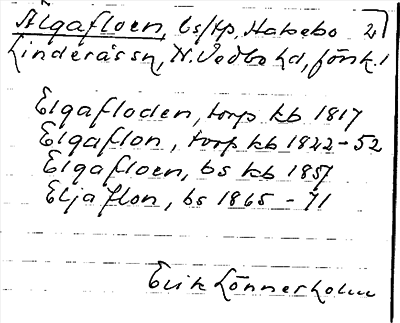 Älgafloen, bs/tp, Habebo 2
Linderås sn, N. Vedbo hd, Jönk. l
Elgafloden, torp kb 1817
Elgaflon, torp kb 1822-52
Elgafloen, bs kb 1857
Eljaflon, bs 1865-71
Erik Lönnerholm